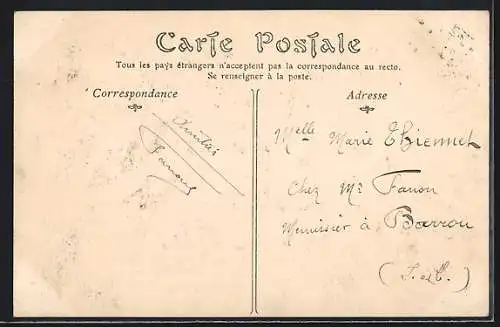 Carte Postale
Tous les pays étrangers n'acceptent pas la correspondance au recto.
Se renseigner à la poste.
Correspondance
Adresse
Amitiés
Melle Marie Thiennet
Chez Mr Fanon
Menuisier à Barrou
(I. et L.)